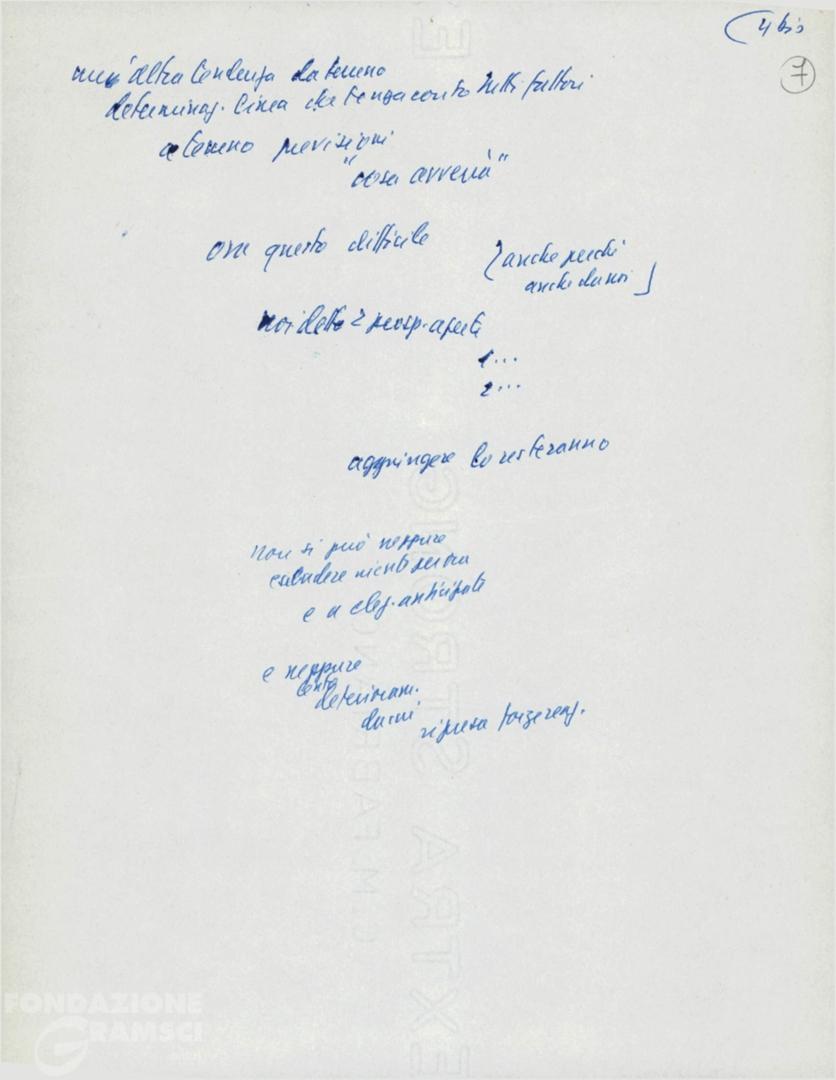 (4 bis
7
un'altra tendenza da terreno
determinaz. linea che tenga conto tutti fattori
a terreno previsioni
"cosa avverrà"
ora questo difficile
(anche perché
anche da noi)
noi detto 2 prosp. aperte
1...
2...
aggiungere lo resteranno
non si può neppure
escludere niente per ora
e a elez. anticipate
e neppure
lento
deterioram.
da cui
ripresa forze reaz.
FONDAZIONE
GRAMSCI
EXTRA STRONG
C. M. FABRIANO